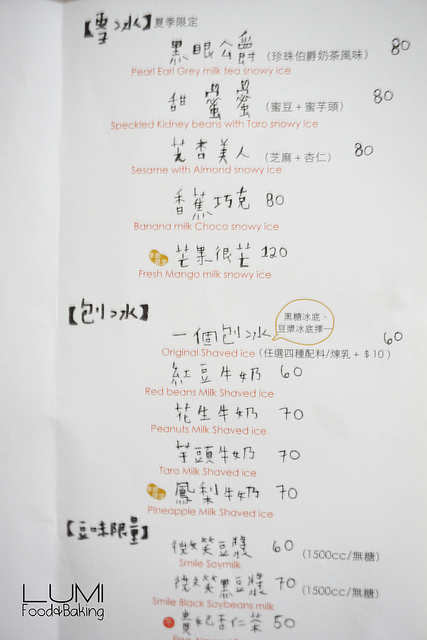 【雪冰】夏季限定
黑眼公爵（珍珠伯爵奶茶風味） 80
Pearl Earl Grey milk tea snowy ice
甜蜜蜜（蜜豆＋蜜芋頭） 80
Speckled Kidney beans with Taro snowy ice
芝杏美人（芝麻＋杏仁） 80
Sesame with Almond snowy ice
香蕉巧克 80
Banana milk Choco snowy ice
芒果很芒 120
Fresh Mango milk snowy ice
【刨冰】
黑糖冰底、
豆漿冰底擇一
一個刨冰 60
Original Shaved ice（任選四種配料/煉乳＋＄10）
紅豆牛奶 60
Red beans Milk Shaved ice
花生牛奶 70
Peanuts Milk Shaved ice
芋頭牛奶 70
Taro Milk Shaved ice
鳳梨牛奶 70
Pineapple Milk Shaved ice
【豆味限量】
微笑豆漿 60（1500cc/無糖）
Smile Soymilk
微笑黑豆漿 70（1500cc/無糖）
Smile Black Soybeans milk
貴妃杏仁茶 50
LUMI
Food&Baking